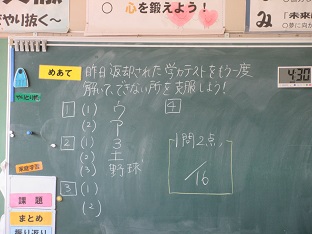 やり抜く〜
心を鍛えよう!
み
「未来
めあて
昨日返却された学力テストをもう一度
解いて、できない所を克服しよう!
4:30
やりとり
1 (1) ウ
(2) ア
2 (1) 3
(2) 土
(3) 野球
3 (1)
(2)
4
1問2点
/16
課題
まとめ
振り返り